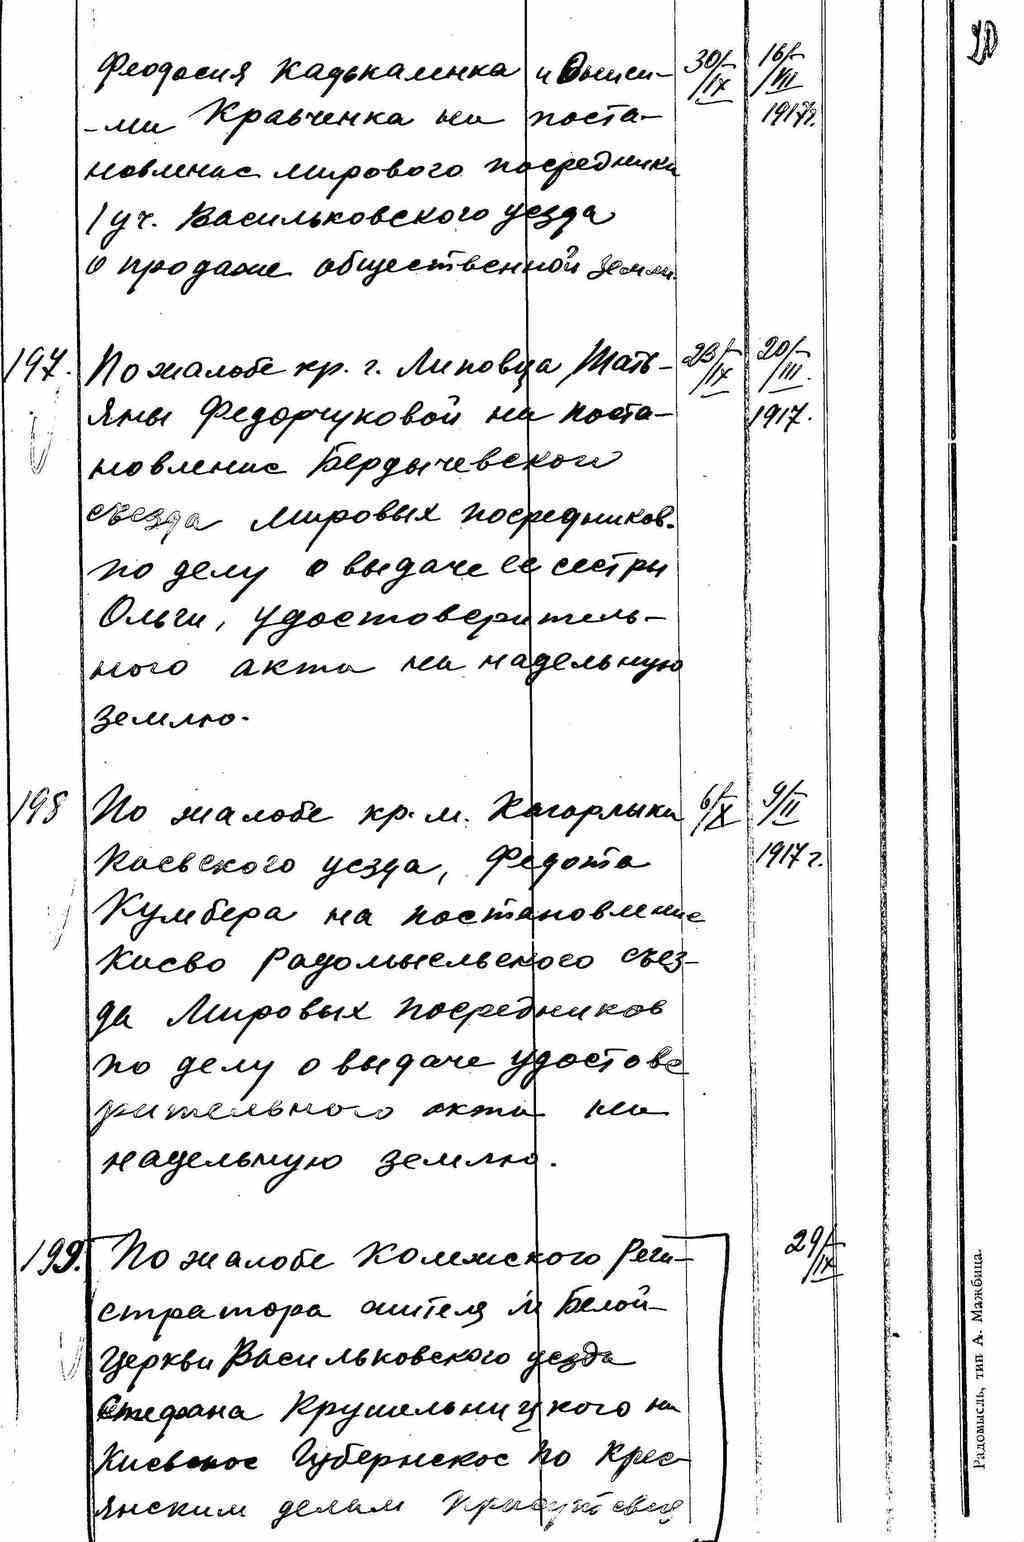 20
Феодосия Кадькаленка и Ониси- 30/IX 16/VIII
-ма Кравченка на поста- 1917г.
новление мирового посредника
1 уч. Васильковского уезда
о продаже общественной земли.
197. По жалобе кр. г. Липовца Тать- 23/IX 20/III.
яны Федорчуковой на поста- 1917.
новление Бердычевского
съезда мировых посредников.
по делу о выдаче ее сестры
Ольги, удостоверитель-
ного акта на надельную
землю.
198 По жалобе кр. м. Кагарлыка 6/X 9/II
Киевского уезда, Федота 1917 г.
Кумбера на постановление
Киево Радомысльского съез-
да Мировых посредников
по делу о выдаче удостове
рительного акта на
надельную землю.
199. По жалобе Колежского Реги- 29/IX
стратора жителя м Белой-
Церкви Васильковского уезда
Стефана Крушельницкого на
Киевское Губернское по Крес-
янским делам Присутствие
Радомысль, тип А. Мажбица.